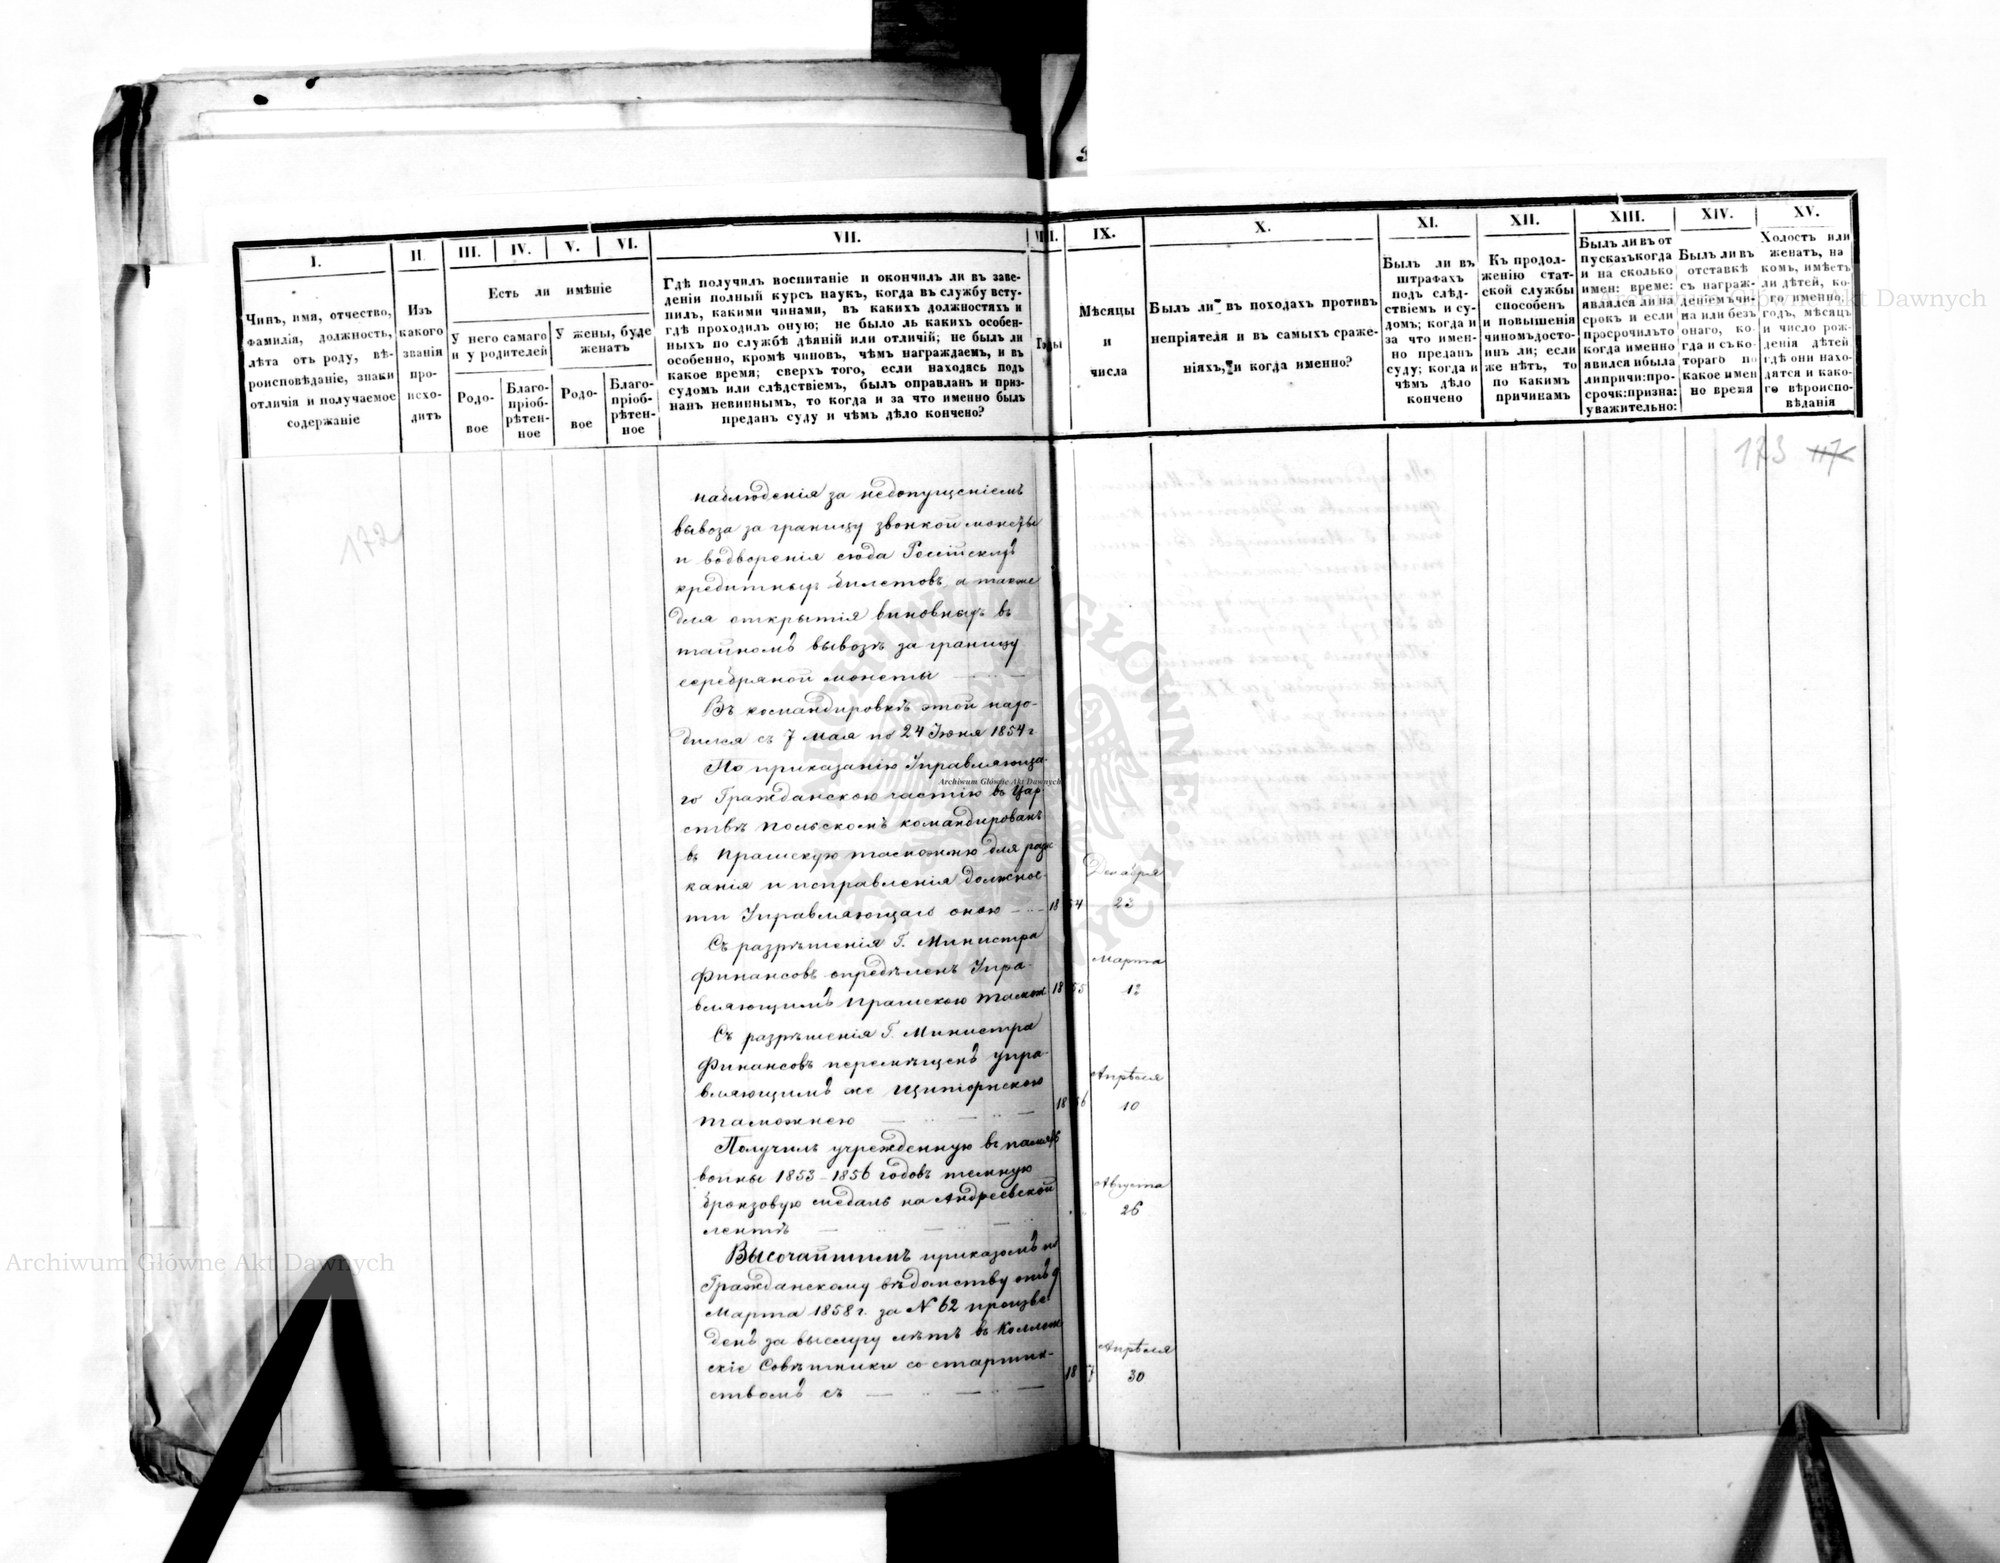 I.
II.
III.
IV.
V.
VI.
VII.
VIII.
IX.
X.
XI.
XII.
XIII.
XIV.
XV.
Чинъ, имя, отчество,
фамилія, должность,
лѣта отъ роду, вѣ-
роисповѣданіе, знаки
отличія и получаемое
содержаніе
Изъ
какого
званія
про-
исхо-
дитъ
Есть ли имѣніе
У него самаго
и у родителей
У жены, буде
женатъ
Родо-
вое
Благо-
пріоб-
рѣтен-
ное
Родо-
вое
Благо-
пріоб-
рѣтен-
ное
Гдѣ получилъ воспитаніе и окончилъ ли въ заве-
деніи полный курсъ наукъ, когда въ службу всту-
пилъ, какими чинами, въ какихъ должностяхъ и
гдѣ проходилъ оную; не было ль какихъ особен-
ныхъ по службѣ дѣяній или отличій; не былъ ли
особенно, кромѣ чиновъ, чѣмъ награждаемъ, и въ
какое время; сверхъ того, если находясь подъ
судомъ или слѣдствіемъ, былъ оправданъ и приз-
нанъ невиннымъ, то когда и за что именно былъ
преданъ суду и чѣмъ дѣло кончено?
Годы
Мѣсяцы
и
числа
Былъ ли въ походахъ противъ
непріятеля и въ самыхъ сраже-
ніяхъ, и когда именно?
Былъ ли въ
штрафахъ
подъ слѣд-
ствіемъ и су-
домъ; когда и
за что имен-
но преданъ
суду; когда и
чѣмъ дѣло
кончено
Къ продол-
женію стат-
ской службы
способенъ
и повышенія
чиномъ досто-
инъ ли; если
же нѣтъ, то
по какимъ
причинамъ
Былъ ли въ от
пускахъ когда
и на сколько
имен: време:
явился ли на
срокъ и если
просрочилъ то
когда именно
явился и была
ли причи: про:
сроч: призна:
уважительно:
Былъ ли въ
отставкѣ
съ награж-
деніемъ чи-
на или безъ
онаго, ко-
гда и съ ко-
тораго по
какое имен
но время
Холостъ или
женатъ, на
комъ, имѣетъ
ли дѣтей, ко-
го именно,
годъ, мѣсяцъ
и число рож-
денія дѣтей
гдѣ они нахо-
дятся и како-
го вѣроиспо-
вѣданія
172
173 117
наблюденія за недопущеніемъ
вывоза за границу звонкой монеты
и водворенія сюда Россійскихъ
кредитныхъ билетовъ, а также
для открытія виновныхъ въ
тайномъ вывозѣ за границу
серебряной монеты
Въ командировкѣ этой нахо-
дился съ 7 Мая по 24 Іюня 1854 г
По приказанію Управляюща-
го Гражданскою частію въ Цар-
ствѣ Польскомъ командированъ
въ Прашскую таможню для
канія и исправленія должнос-
ти Управляющаго оною
1854
Декабря
23
Съ разрѣшенія Г. Министра
Финансовъ опредѣленъ Упра-
вляющимъ Прашскою тамож
1855
Марта
12
Съ разрѣшенія Г. Министра
Финансовъ перемѣщенъ упра-
вляющимъ же Щипіорнскою
таможнею
1856
Апрѣля
10
Получилъ учрежденную въ память
войны 1853-1856 годовъ темную
бронзовую медаль на Андреевской
лентѣ
Августа
26
Высочайшимъ приказомъ по
Гражданскому вѣдомству отъ 9
Марта 1858 г. за N 62 произве
денъ за выслугу лѣтъ въ Коллеж
скіе Совѣтники со старшин-
ствомъ съ
1857
Апрѣля
30
Archiwum Główne Akt Dawnych
Archiwum Główne Akt Dawnych
Archiwum Główne Akt Dawnych
ARCHIWUM GŁÓWNE AKT DAWNYCH